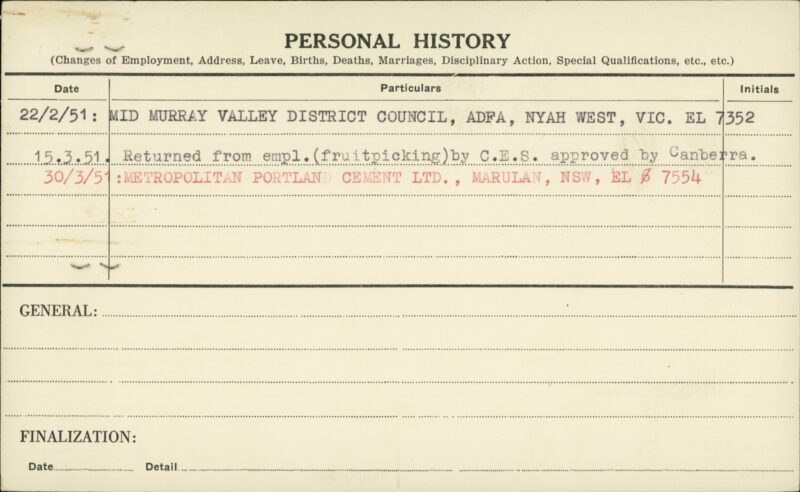 PERSONAL HISTORY
(Changes of Employment, Address, Leave, Births, Deaths, Marriages, Disciplinary Action, Special Qualifications, etc., etc.)
Date Particulars Initials
22/2/51: MID MURRAY VALLEY DISTRICT COUNCIL, ADFA, NYAH WEST, VIC. EL 7352
15.3.51. Returned from empl.(fruitpicking)by C.E.S. approved by Canberra.
30/3/51:METROPOLITAN PORTLAND CEMENT LTD., MARULAN, NSW, EL 7554
GENERAL:
FINALIZATION:
Date Detail